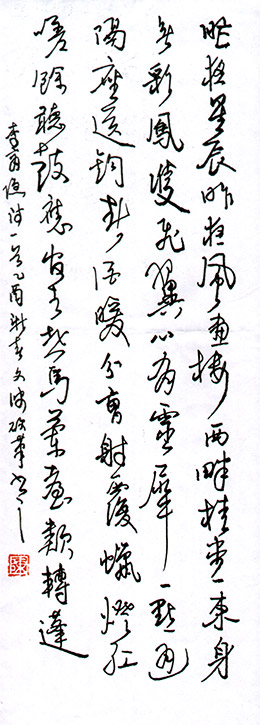 昨夜星辰昨夜風畫樓西畔桂堂東身
無彩鳳雙飛翼心有靈犀一點通
隔座送鉤春酒暖分曹射覆蠟燈紅
嗟餘聽鼓應官去走馬蘭臺類轉蓬
李商隱詩一首乙酉新春文海硬筆書之